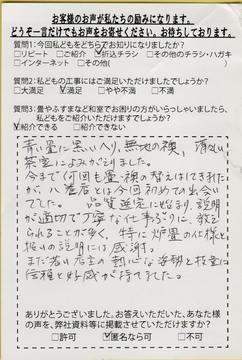 お客様のお声が私たちの励みになります。
どうぞ一言だけでもお声をお寄せください。お待ちしております。
質問1:今回私どもをどちらでお知りになりましたか?
□リピート □ご紹介 ☑折込チラシ □その他のチラシ・ハガキ
□インターネット □その他(
質問2:私どもの工事にはご満足いただけましたでしょうか?
□大満足 ☑満足 □やや不満 □不満
質問3:畳やふすまなど和室でお困りの方がいらっしゃいましたら、
私どもをご紹介いただけますか?
☑紹介できる □紹介できない
青畳に黒い入り、無地の襖、清々しい
茶室によみがえりました。
今まで何回も畳の替えはしてきました
が、八畳店とは今回初めての出会い
でした。品質選定に始まり、説明
が適切で丁寧な仕事ぶりに、教え
られることが多く、特に炉畳の仕様と
扱いの説明には感謝。
また若い店主の熱心な姿勢と技量に
信頼と好感が持てました。
ありがとうございました。お答えいただいた、あなた様
の声を、弊社資料等に掲載させていただけますか?
□許可 ☑匿名なら可 □不可